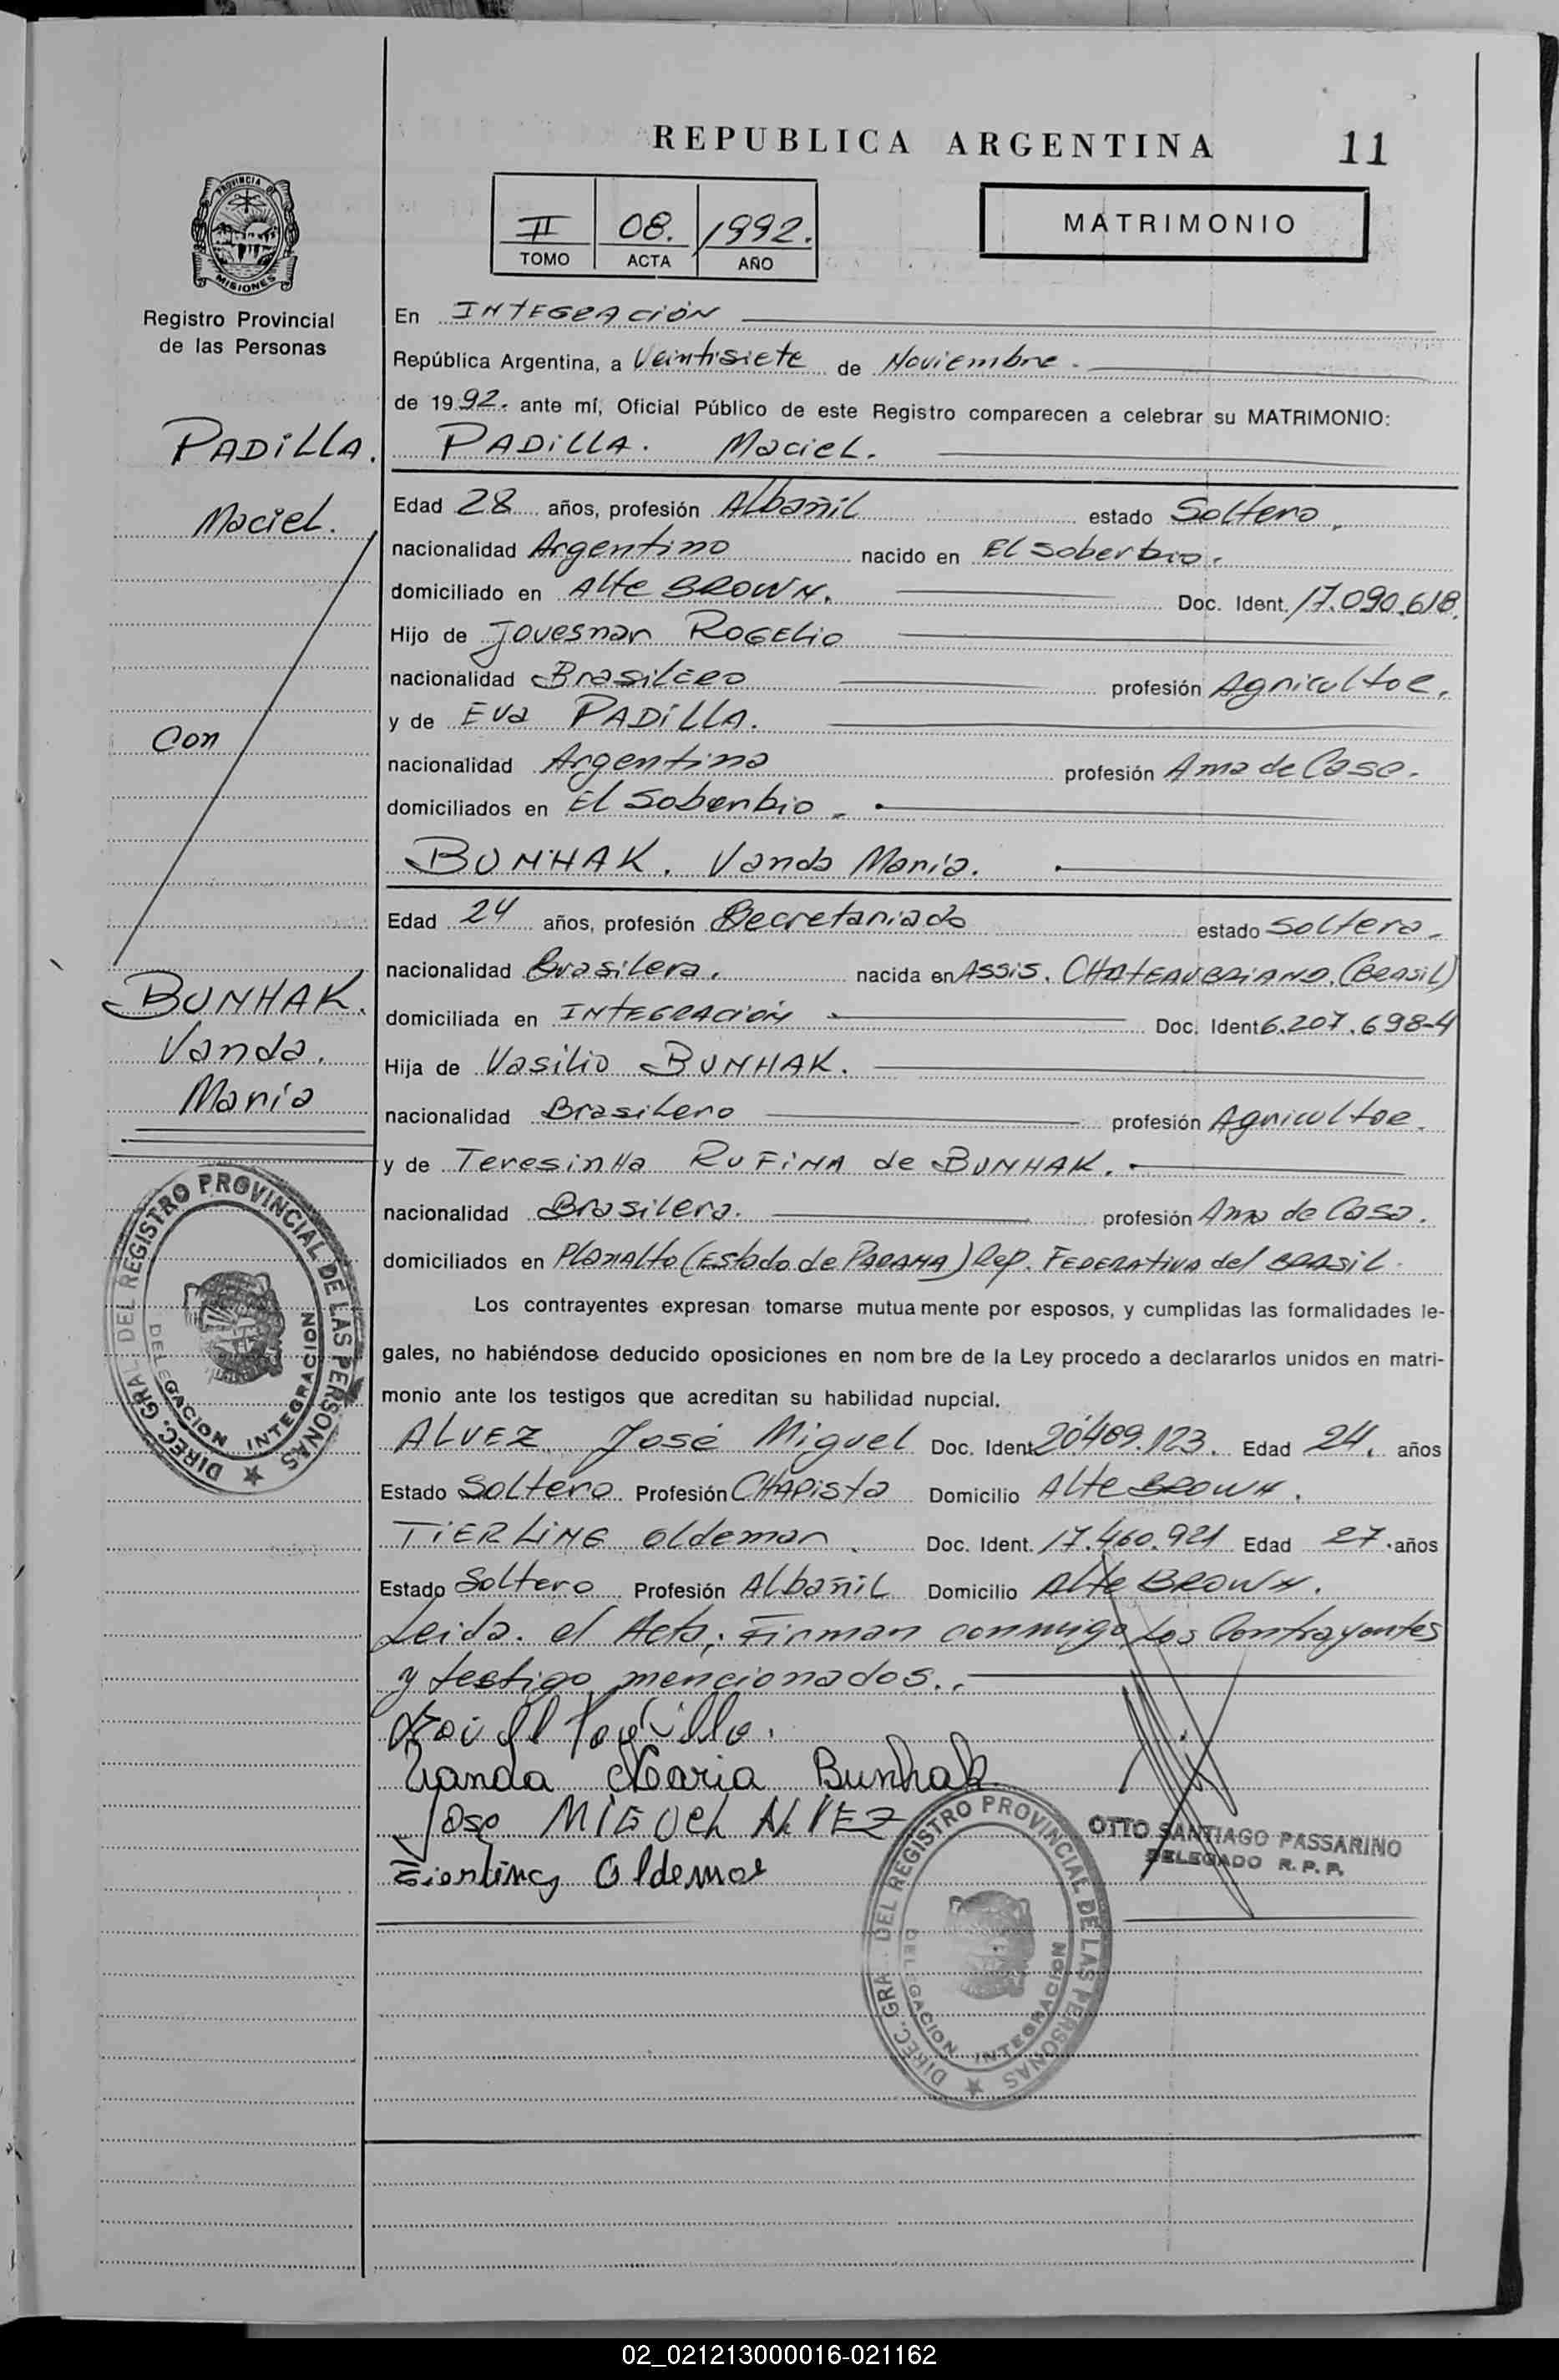 REPUBLICA ARGENTINA
11
PROVINCIA DE
MISIONES
Registro Provincial
de las Personas
II 08. 1992.
TOMO ACTA AÑO
MATRIMONIO
En INTEGRACIÓN
República Argentina, a Veintisiete de Noviembre.
de 1992. ante mí, Oficial Público de este Registro comparecen a celebrar su MATRIMONIO:
PADILLA. Maciel.
PADILLA.
Maciel.
Con
BUNHAK.
Vanda.
Maria
Edad 28 años, profesión Albañil estado Soltero.
nacionalidad Argentino nacido en El Soberbio.
domiciliado en Alte BROWN. Doc. Ident. 17.090.618.
Hijo de Jovesnar ROGELIO
nacionalidad Brasilero profesión Agricultor.
y de Eva PADILLA.
nacionalidad Argentina profesión Ama de Casa.
domiciliados en El Soberbio.
BUNHAK. Vanda Maria.
Edad 24 años, profesión Secretariado estado Soltera.
nacionalidad Brasilera. nacida en ASSIS. CHATEAUBRIAND. (BRASIL)
domiciliada en INTEGRACIÓN Doc. Ident 6.207.698-4
Hija de Vasilio BUNHAK.
nacionalidad Brasilero profesión Agricultor.
y de Teresinha RUFINA de BUNHAK.
nacionalidad Brasilera. profesión Ama de Casa.
domiciliados en Planalto (Estado de PARANA) Rep. FEDERATIVA del BRASIL.
Los contrayentes expresan tomarse mutuamente por esposos, y cumplidas las formalidades le-
gales, no habiéndose deducido oposiciones en nombre de la Ley procedo a declararlos unidos en matri-
monio ante los testigos que acreditan su habilidad nupcial.
ALVEZ José Miguel Doc. Ident 20.489.123. Edad 24. años
Estado Soltero Profesión CHAPista Domicilio Alte BROWN.
TIERLING Oldemar. Doc. Ident. 17.460.921 Edad 27. años
Estado Soltero Profesión Albañil Domicilio Alte BROWN.
Leida. el Acta, Firman conmigo, Los Contrayentes
y testigo mencionados.
Vanda Maria Bunhak
Jose MIGUEL ALVEZ
Tierling Oldemar
OTTO SANTIAGO PASSARINO
DELEGADO R. P. P.
DIREC. GRAL. DEL REGISTRO PROVINCIAL DE LAS PERSONAS
DELEGACION INTEGRACION
DIREC. GRAL. DEL REGISTRO PROVINCIAL DE LAS PERSONAS
DELEGACION INTEGRACION
02_021213000016-021162